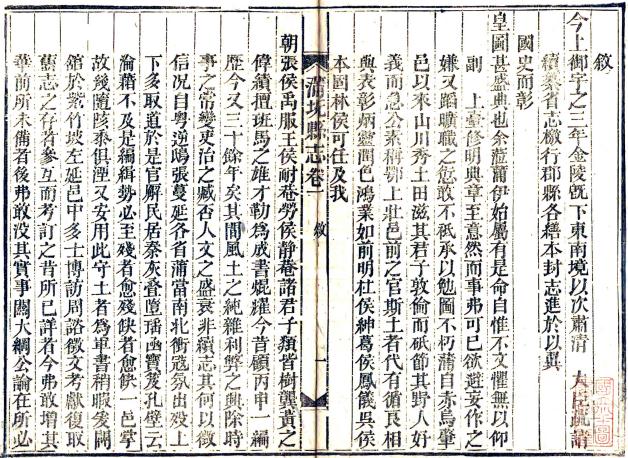 敘
今上御宇之三年金陵旣下東南境以次肅清 大臣疏請
續纂省志檄行郡縣各繕本封志進於以奠
國史而彰
皇圖甚盛典也余蒞蒲伊始屬有是命自惟不文懼無以仰
副 上臺修明典章至意然而事弗可已欲避妄作之
嫌又蹈曠職之愆敢不祗承以勉圖不朽蒲自赤烏肇
邑以來山川秀土田滋其君子敦倫而砥節其野人好
義而急公素稱鄂上壯邑前之官斯土者代有循良相
與表彰炳靈潤色鴻業如前明杜侯紳葛侯鳳儀吳侯
本固林侯可任及我
蒲圻縣志 卷一 敘 一
朝張侯禹服王侯耐菴勞侯靜菴諸君子類皆樹龔黃之
偉績擅班馬之雄才勒為成書焜耀今昔顧丙申一編
歷今又三十餘年矣其間風土之純雜利弊之興除時
事之常變吏治之臧否人文之盛衰非續志其何以徵
信况自粤逆鴟張蔓延各省蒲當南北衝寇氛出没上
下多取道於是官廨民居秦灰沓墮瑤函寶笈孔壁云
淪藉不及是編緝勢必至殘者愈殘缺者愈缺一邑掌
故幾隨陔黍俱湮又安用此守土者為軍書稍暇爰開
舘於紫竹坡左延邑中多士博訪周諮徵文考獻復取
舊志之存者參互而考訂之昔所已詳者今弗敢增其
華前所未備者後弗敢没其實事關大綱公論在所必